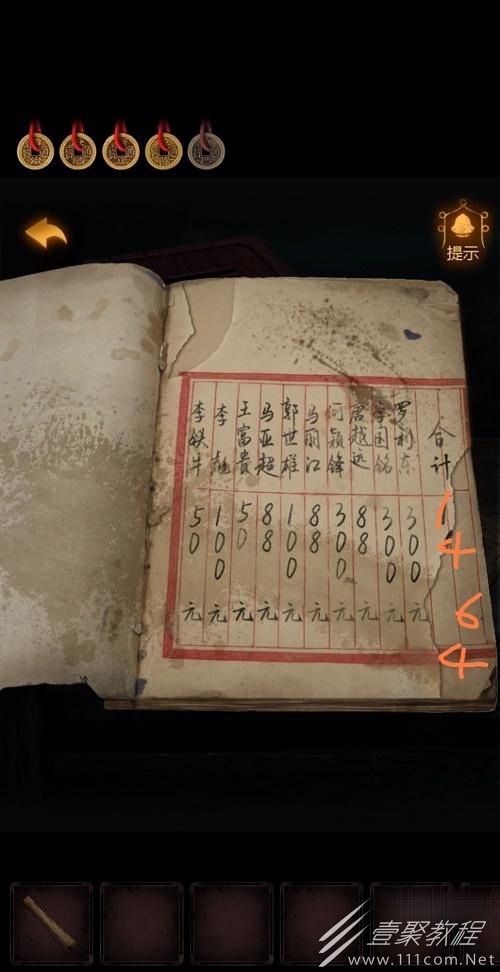 提示
李铁牛 50元
李彪 100元
王富贵 50元
马亚超 88元
郭世雄 100元
马丽江 88元
何颖锋 300元
唐越远 88元
国铭 300元
罗利东 300元
合计 1464
壹聚教程
www.111com.Net